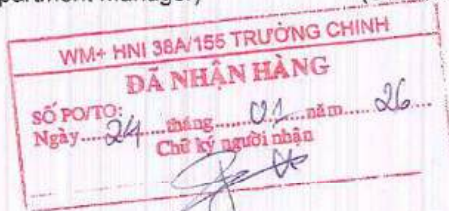 partment manager)
WM+ HNI 38A/155 TRƯỜNG CHINH
ĐÃ NHẬN HÀNG
SỐ PO/TO:
Ngày.....24.....tháng.....01.....năm.....26....
Chữ ký người nhận